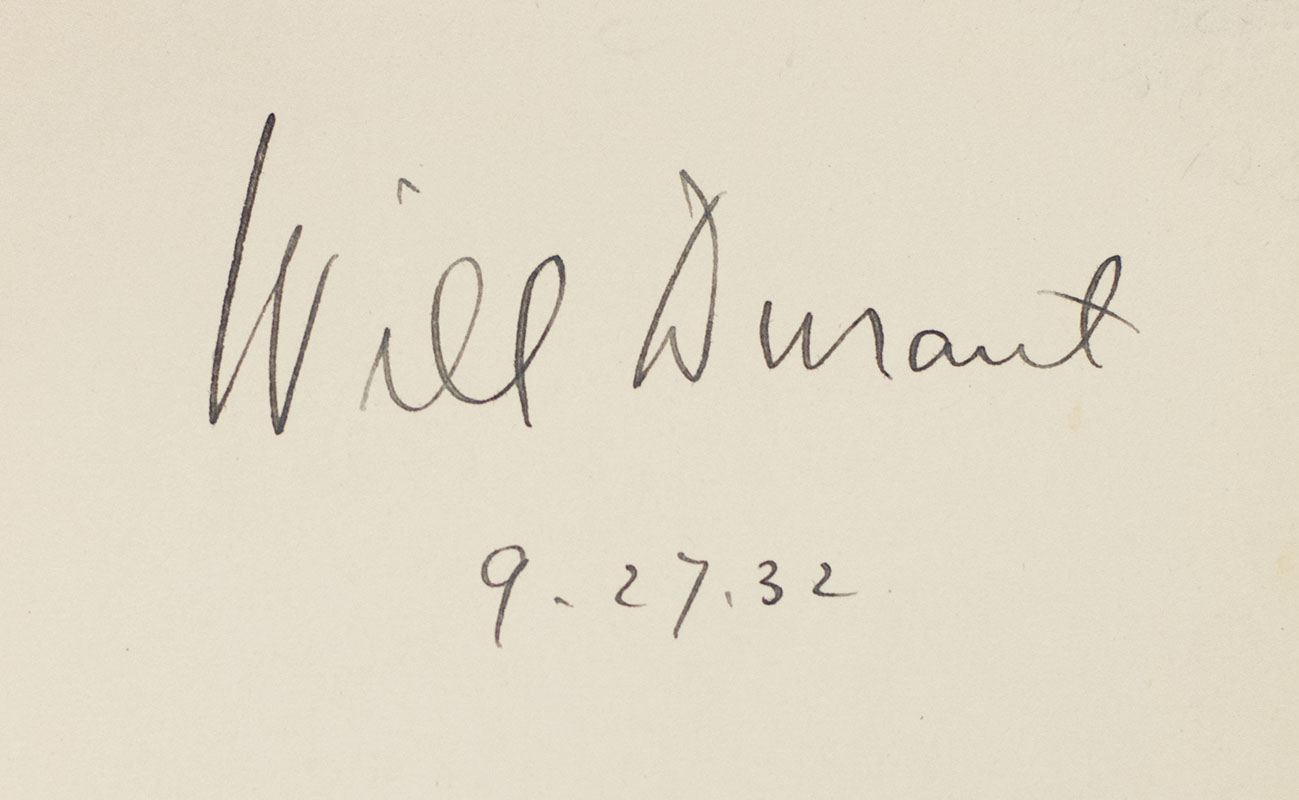 Will Durant
9-27.32